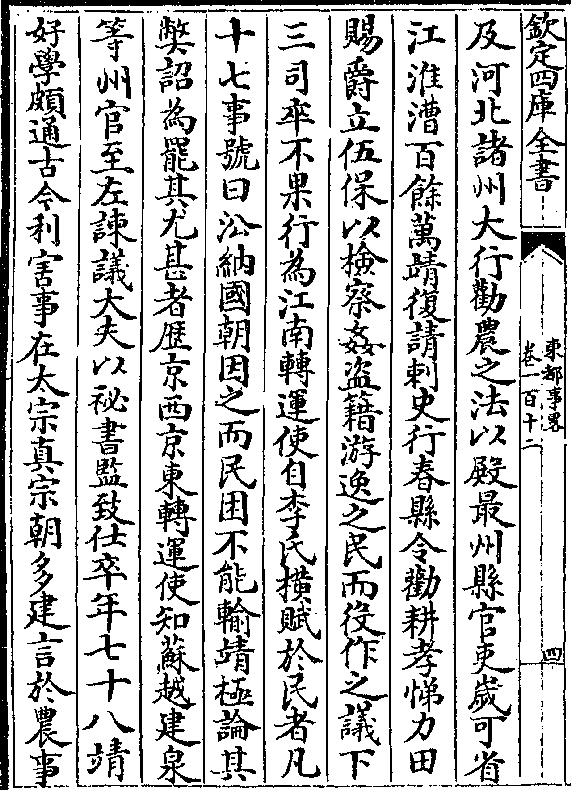 欽定四庫全書
東都事略
卷一百十二
四
及河北諸州大行勸農之法以殿最州縣官吏歲可省
江淮漕百餘萬靖復請刺史行春縣令勸耕孝悌力田
賜爵立伍保以檢察姦盜籍游逸之民而役作之議下
三司卒不果行為江南轉運使自李氏橫賦於民者凡
十七事號曰㳂納國朝因之而民困不能輸靖極論其
獘詔為罷其尤甚者歴京西京東轉運使知蘇越建泉
等州官至左諫議大夫以秘書監致仕卒年七十八靖
好學頗通古今利害事在太宗真宗朝多建言於農事